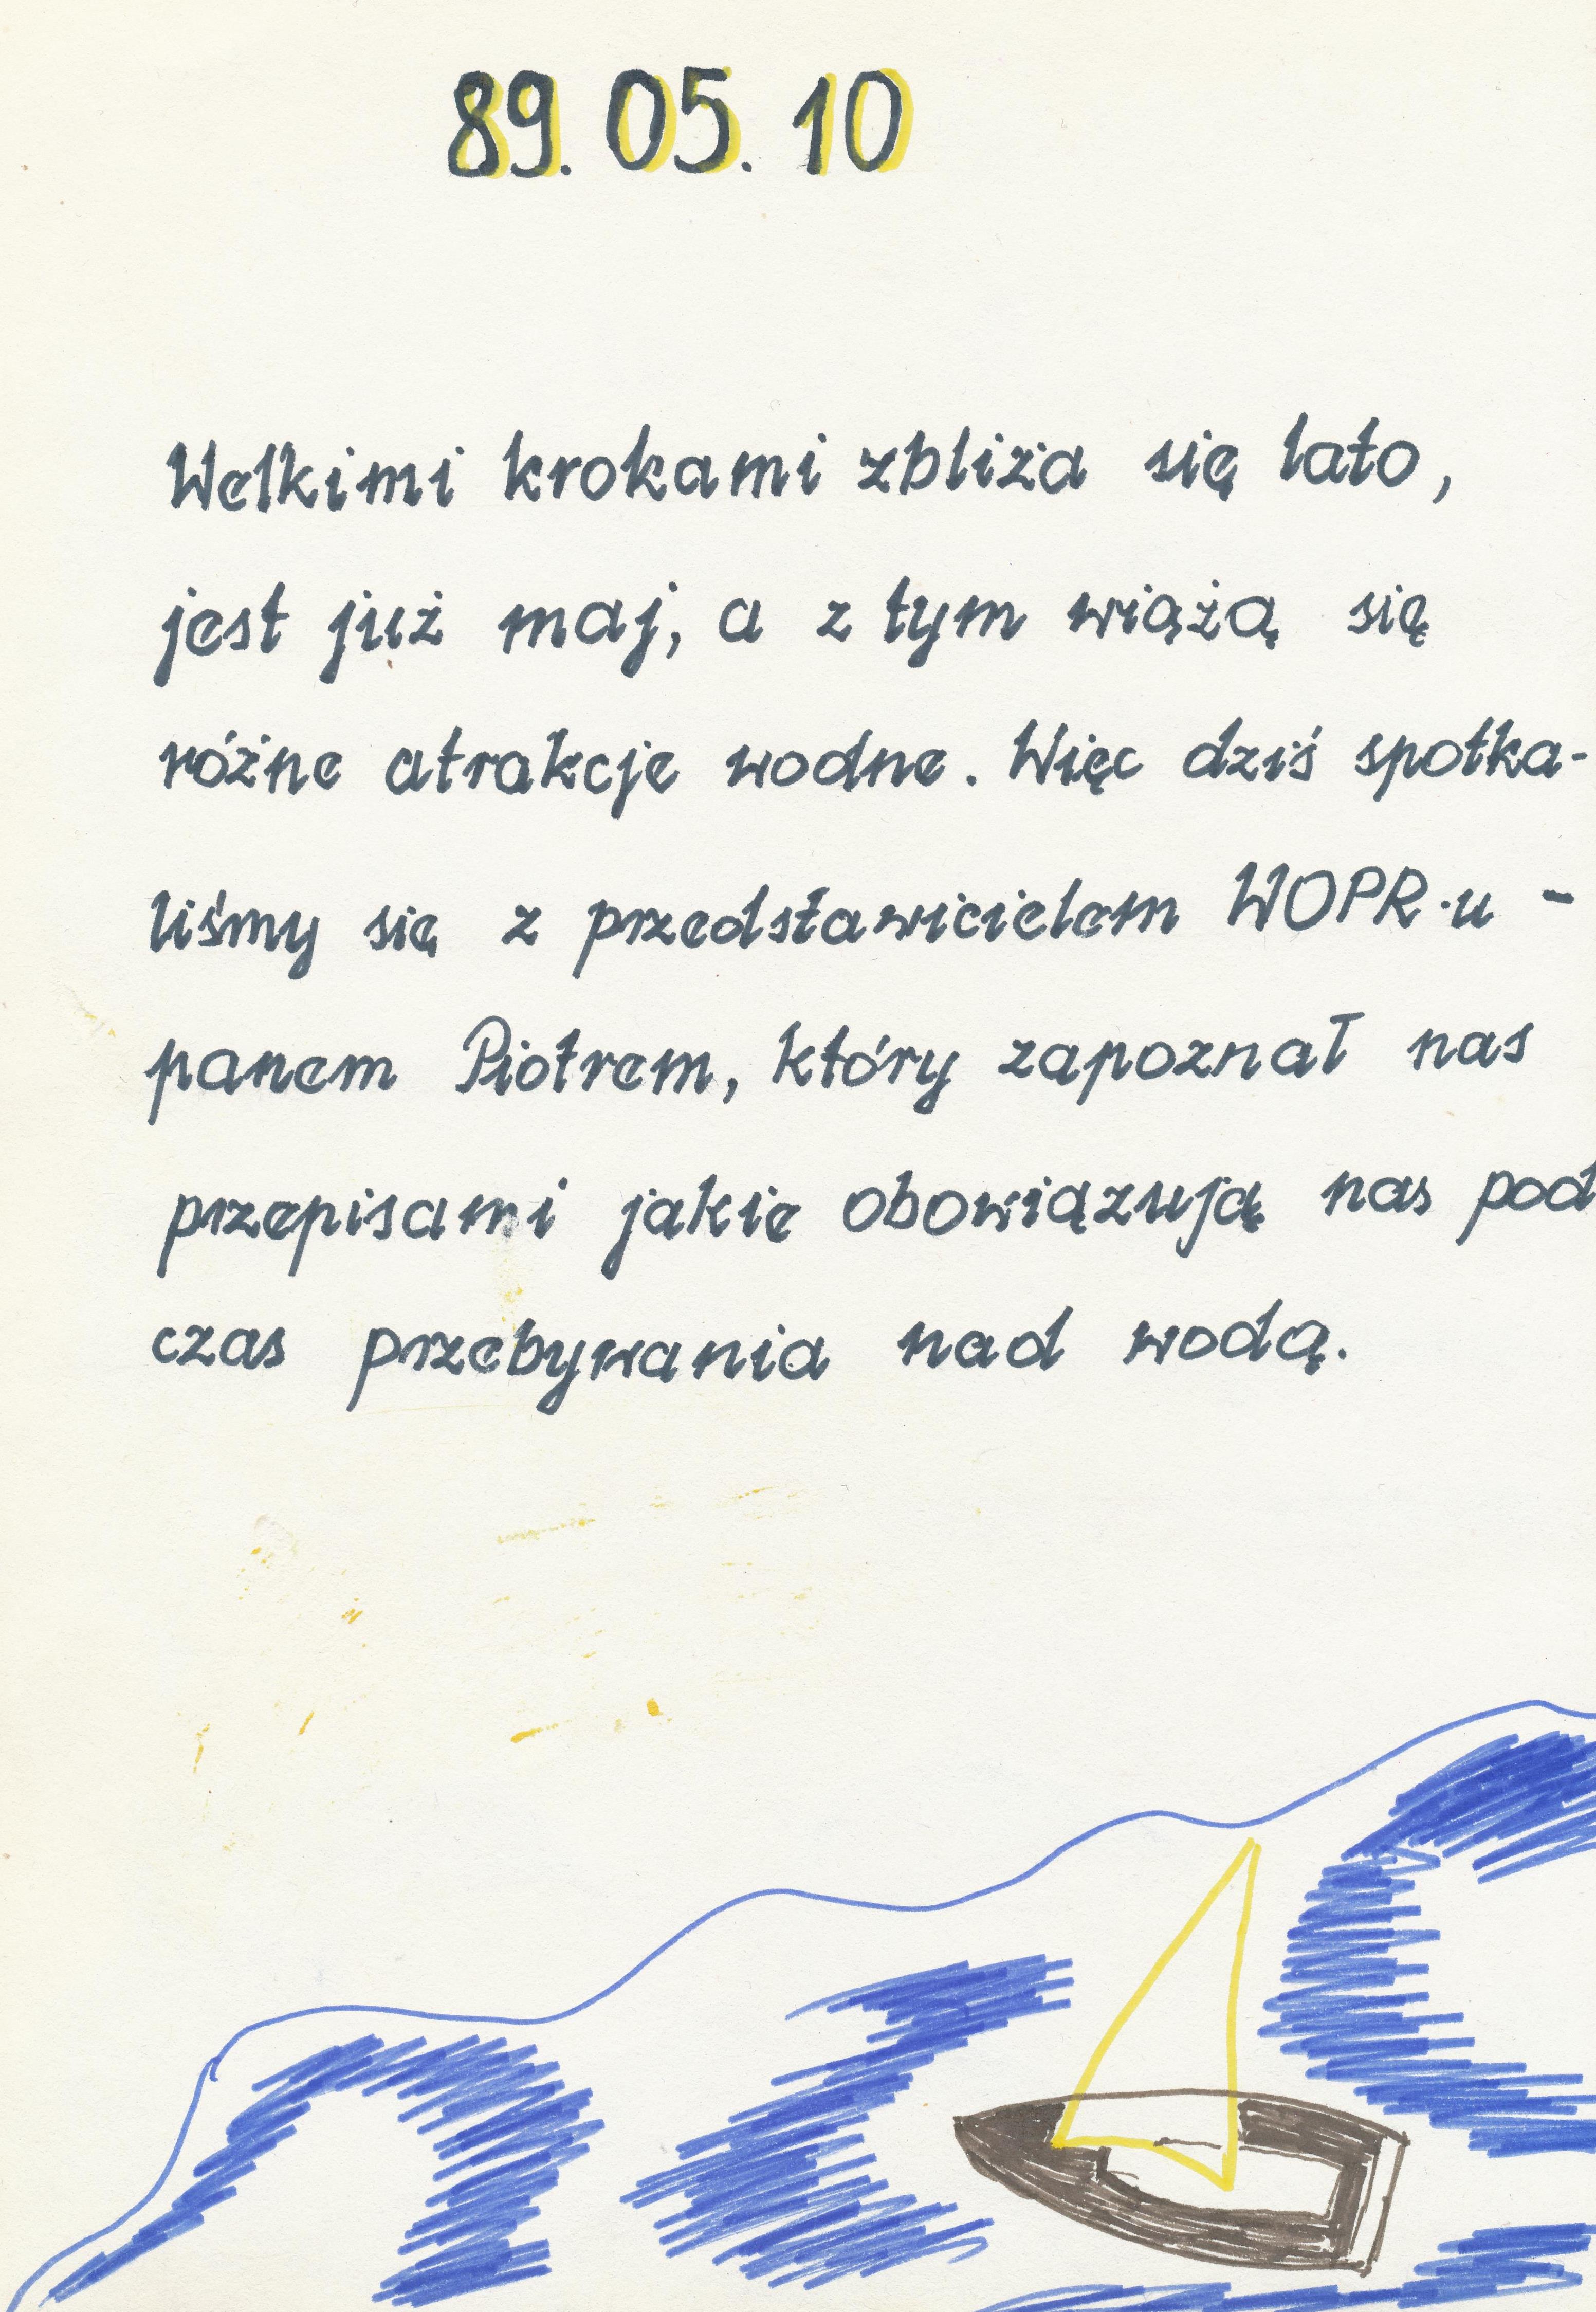 89. 05. 10
Welkimi krokami zbliża się lato,
jest już maj, a z tym wiążą się
różne atrakcje wodne. Więc dziś spotka-
liśmy się z przedstawicielem WOPR-u -
panem Piotrem, który zapoznał nas
przepisami jakie obowiązują nas pod
czas przebywania nad wodą.